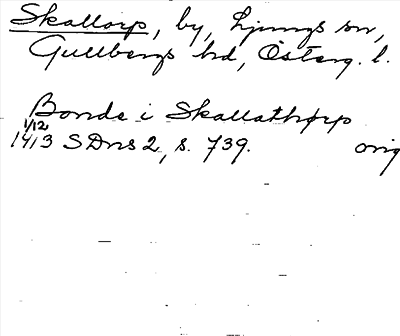 Skallorp, by, Ljungs sn,
Gullbergs hd, Österg. l.
Bonde i Skallathørp
1/12
1413 SDns 2, s. 739. orig